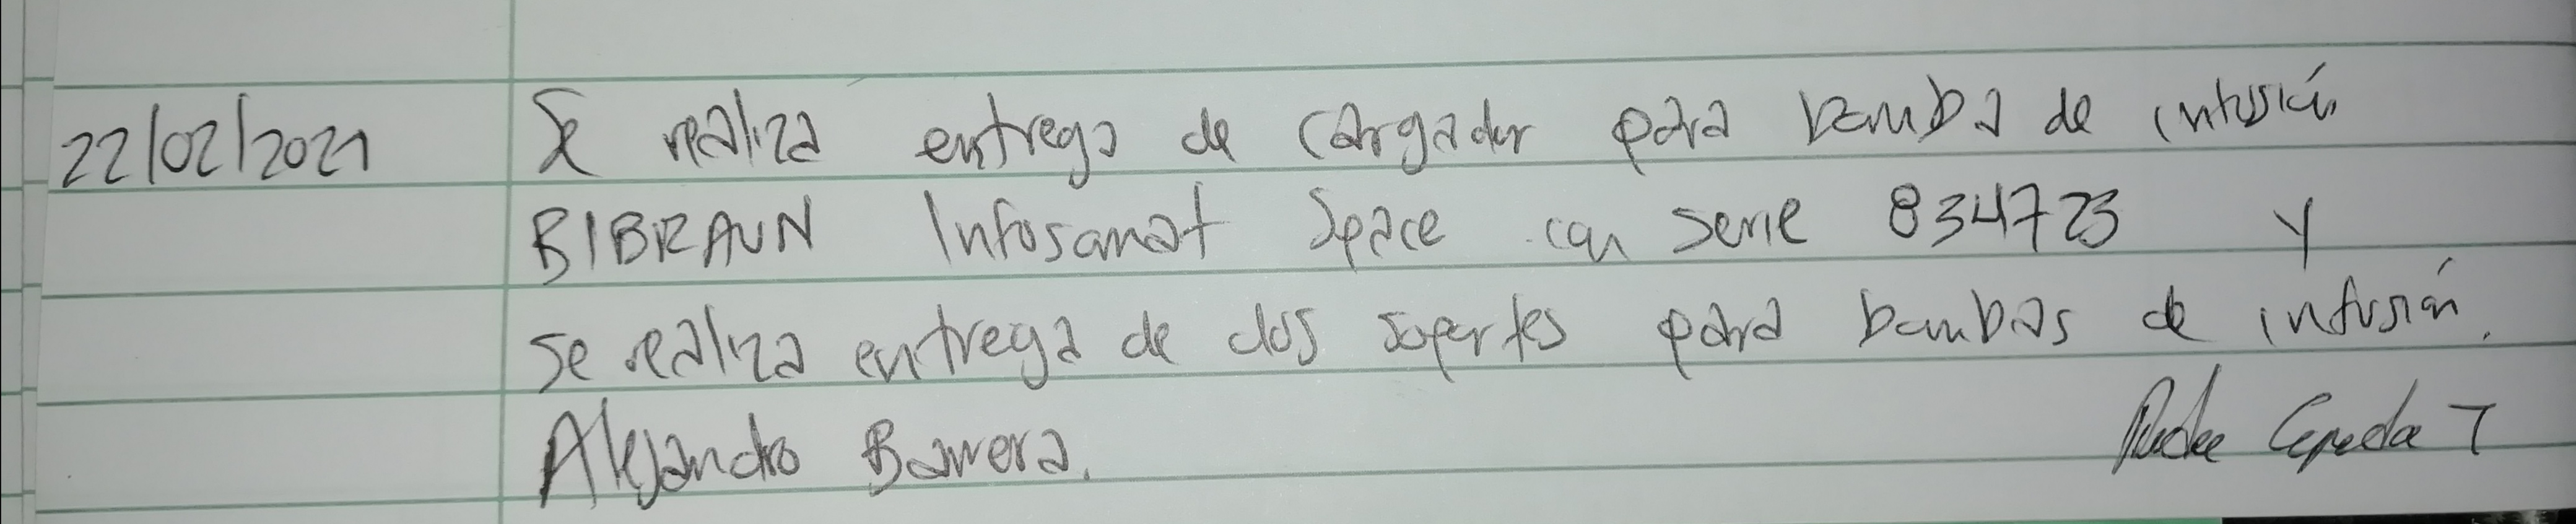 22/02/2021 Se realiza entrega de cargador para bomba de infusión
B|BRAUN Infosomat Space con serie 834723 y
se realiza entrega de dos soportes para bombas de infusión.
Alejandro Barrera. Cepeda T